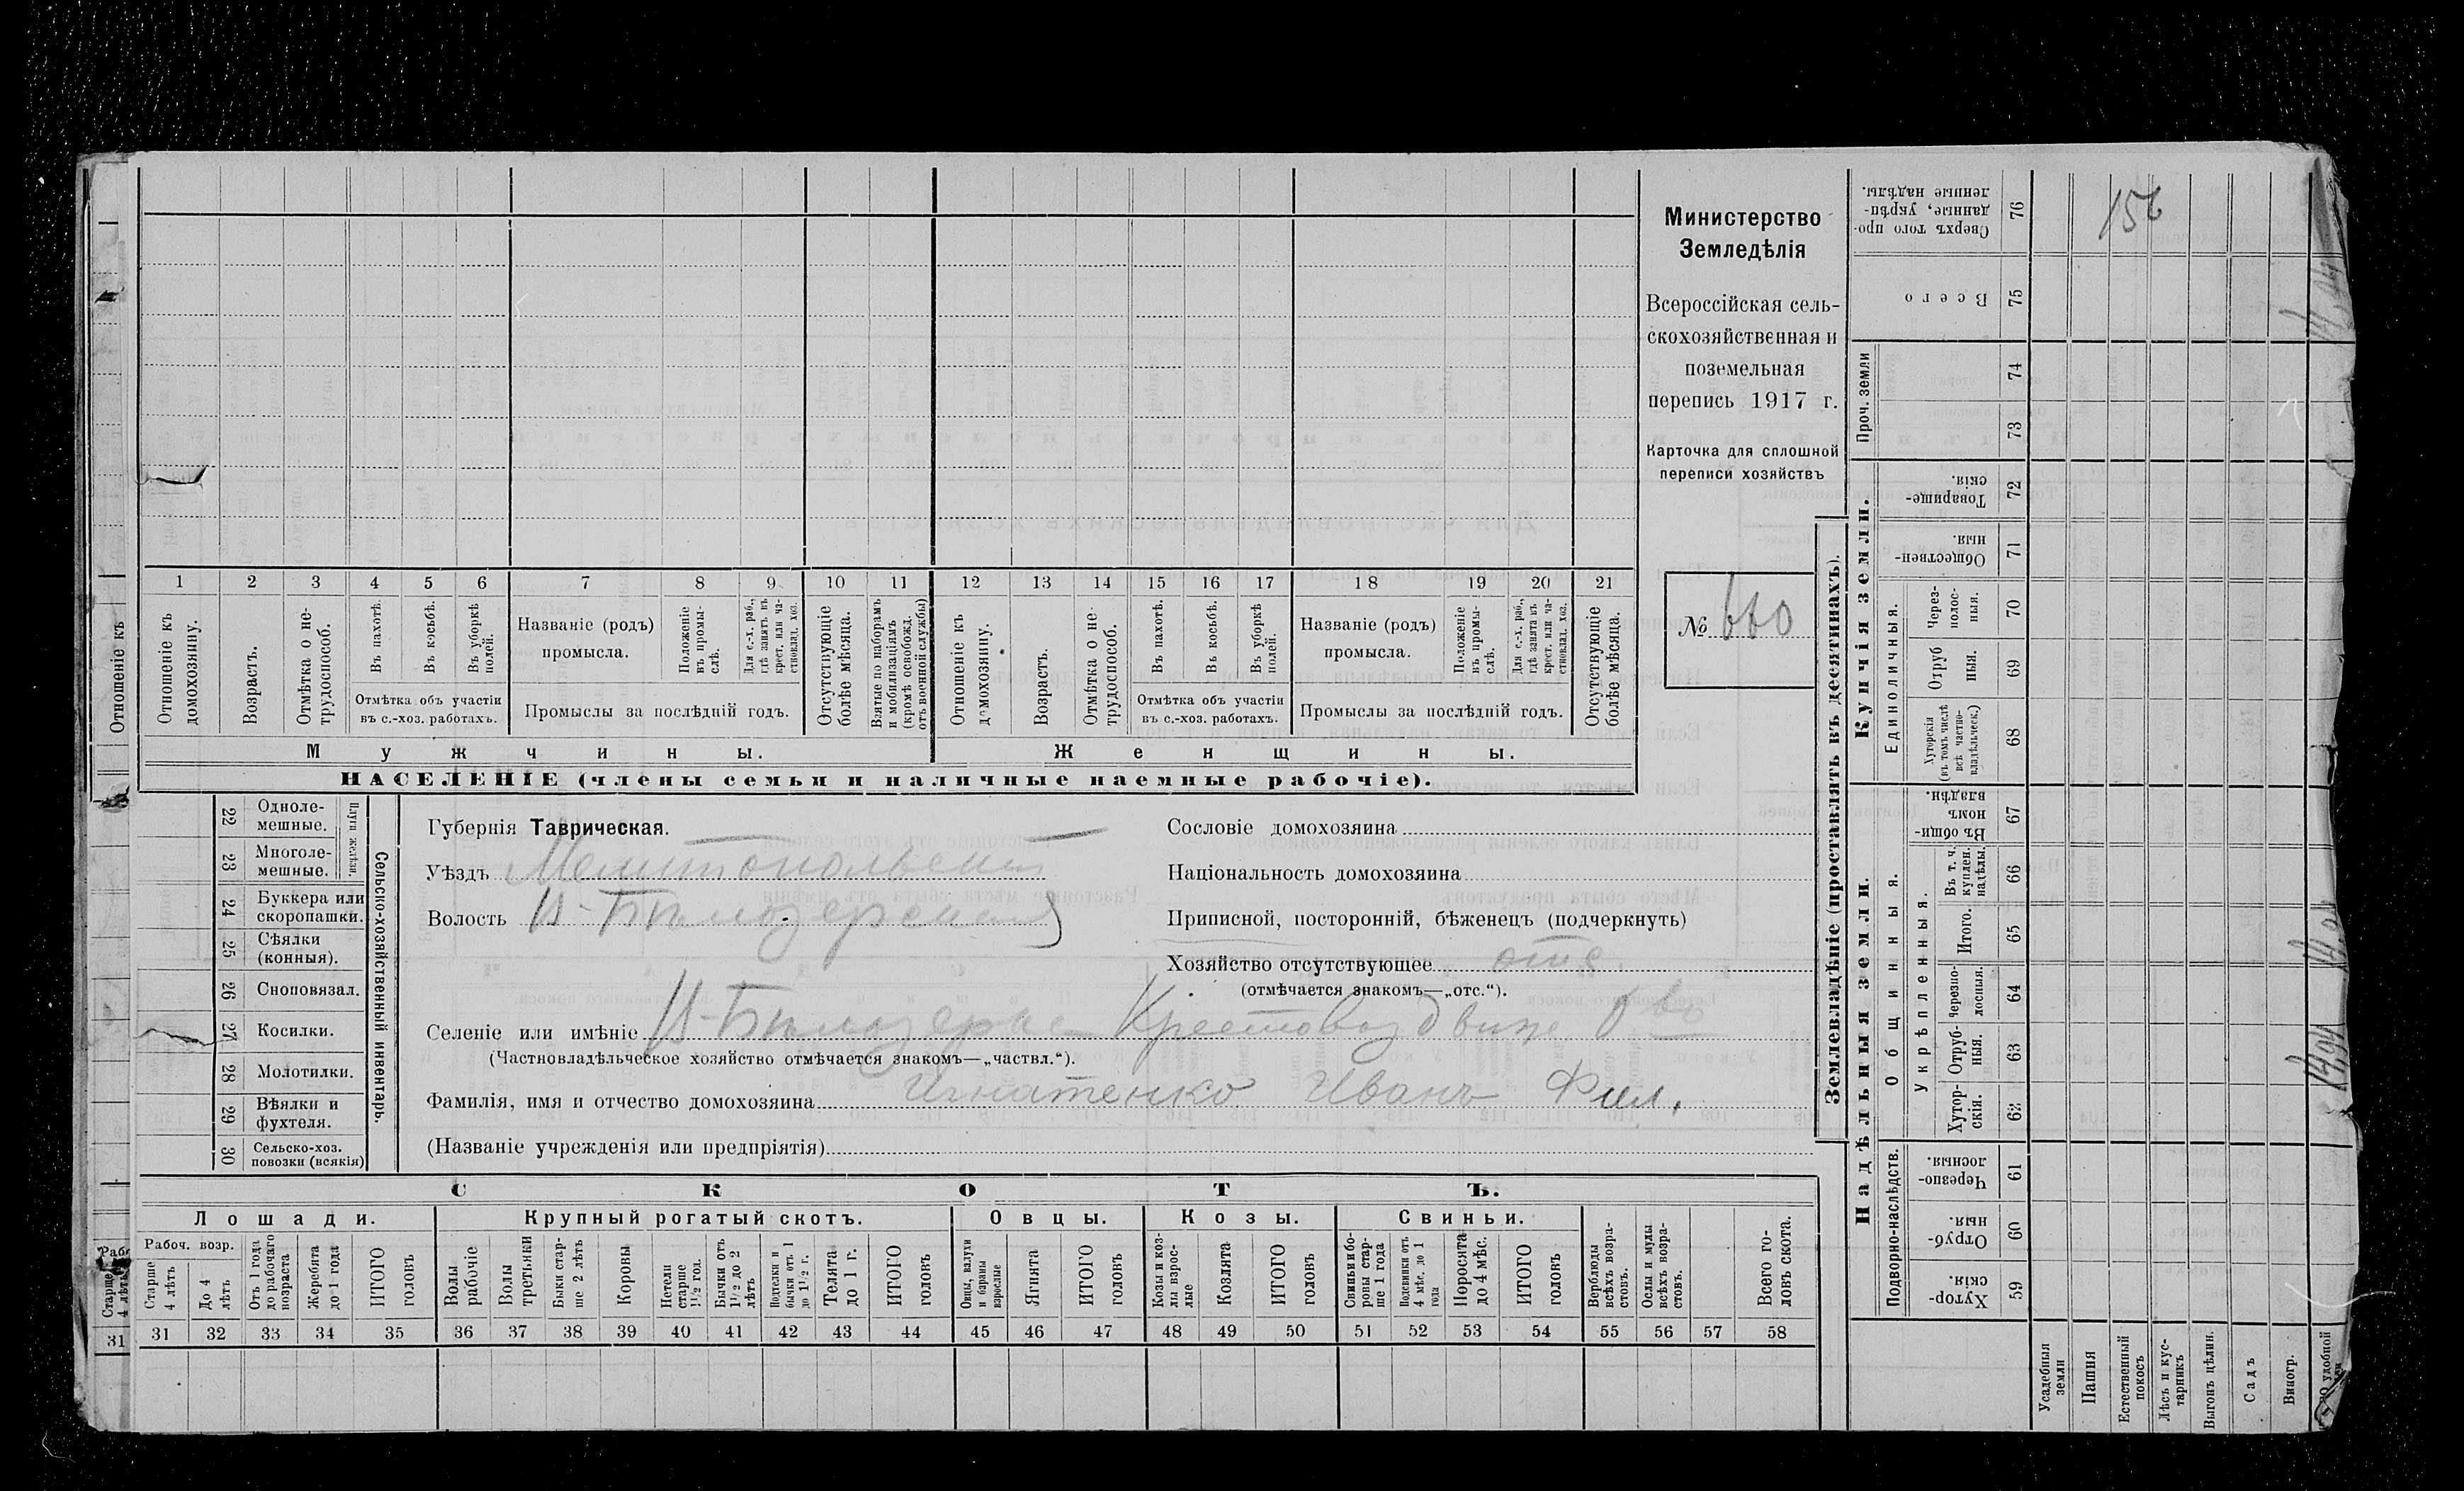 Министерство
Земледѣлія
Всероссійская сель-
скохозяйственная и
поземельная
перепись 1917 г.
Карточка для сплошной
переписи хозяйствъ
№ 660
1 2 3 4 5 6 7 8 9 10 11 12 13 14 15 16 17 18 19 20 21
Отношеніе къ домохозяину.
Возрастъ.
Отмѣтка о не-трудоспособ.
Въ пахотѣ.
Въ косьбѣ.
Въ уборкѣ полей.
Отмѣтка объ участіи
въ с.-хоз. работахъ.
Названіе (родъ)
промысла.
Положеніе въ промы-слѣ.
Для с.-х. раб., гдѣ занятъ въ крест. или ча-стновлад. хоз.
Промыслы за послѣдній годъ.
Отсутствующіе болѣе мѣсяца.
Взятые по наборамъ и мобилизаціямъ (кромѣ освобожд. отъ военной службы)
Отношеніе къ домохозяину.
Возрастъ.
Отмѣтка о не-трудоспособ.
Въ пахотѣ.
Въ косьбѣ.
Въ уборкѣ полей.
Отмѣтка объ участіи
въ с.-хоз. работахъ.
Названіе (родъ)
промысла.
Положеніе въ промы-слѣ.
Для с.-х. раб., гдѣ занята въ крест. или ча-стновлад. хоз.
Промыслы за послѣдній годъ.
Отсутствующіе болѣе мѣсяца.
Мужчины. Женщины.
НАСЕЛЕНІЕ (члены семьи и наличные наемные рабочіе).
Сельско-хозяйственный инвентарь.
Плуги желѣзн.
22 Одноле-мешные.
23 Многоле-мешные.
24 Буккера или скоропашки.
25 Сѣялки (конныя).
26 Сноповязал.
27 Косилки.
28 Молотилки.
29 Вѣялки и фухтеля.
30 Сельско-хоз. повозки (всякія)
Губернія Таврическая.
Уѣздъ Мелитопольскій
Волость В-Бѣлозерская
Сословіе домохозяина
Національность домохозяина
Приписной, посторонній, бѣженецъ (подчеркнуть)
Хозяйство отсутствующее отс.
(отмѣчается знакомъ—„отс.“).
Селеніе или имѣніе В-Бѣлозерка Крестовоздвиж О-во
(Частновладѣльческое хозяйство отмѣчается знакомъ—„частвл.“).
Фамилія, имя и отчество домохозяина Игнатенко Иванъ Фил.
(Названіе учрежденія или предпріятія)
СКОТЪ.
Лошади. Крупный рогатый скотъ. Овцы. Козы. Свиньи.
Рабоч. возр.
Старше 4 лѣтъ
До 4 лѣтъ
Отъ 1 года до рабочаго возраста
Жеребята до 1 года
ИТОГО головъ
Волы рабочіе
Волы третьяки
Быки стар-ше 2 лѣтъ
Коровы
Нетели старше 1½ год.
Бычки отъ 1½ до 2 лѣтъ
Подтелки и бычки отъ 1 до 1½ г.
Телята до 1 г.
ИТОГО головъ
Овцы, валухи и бараны взрослые
Ягнята
ИТОГО головъ
Козы и коз-лы взрос-лые
Козлята
ИТОГО головъ
Свиньи и бо-ровы стар-ше 1 года
Подсвинки отъ 4 мѣс. до 1 года
Поросята до 4 мѣс.
ИТОГО головъ
Верблюды всѣхъ возра-стовъ.
Ослы и мулы всѣхъ возра-стовъ.
Всего го-ловъ скота.
31 32 33 34 35 36 37 38 39 40 41 42 43 44 45 46 47 48 49 50 51 52 53 54 55 56 57 58
Землевладѣніе (проставлять въ десятинахъ).
Купчія земли.
Надѣльныя земли.
Сверхъ того про-данные, укрѣп-ленные надѣлы. 76
Всего 75
Проч. земли 74 73
Товарище-скія. 72
Обществен-ныя. 71
Единоличныя.
Через-полос-ныя. 70
Отруб ныя. 69
Хуторскія (въ томъ числѣ всѣ частно-владѣльческ.) 68
Общинныя.
Въ общи-номъ владѣн. 67
Укрѣпленныя.
Въ т. ч. куплен. надѣлы. 66
Итого. 65
Черезпо-лосныя. 64
Отруб-ныя. 63
Хутор-скія. 62
Подворно-наслѣдств.
Черезпо-лосныя. 61
Отруб-ныя. 60
Хутор-скія. 59
Усадебныя земли
Пашня
Естественный покосъ
Лѣсъ и кус-тарникъ
Выгонъ цѣлин.
Садъ
Виногр.
удобной
Отношеніе къ
Старше 4 лѣтъ
31